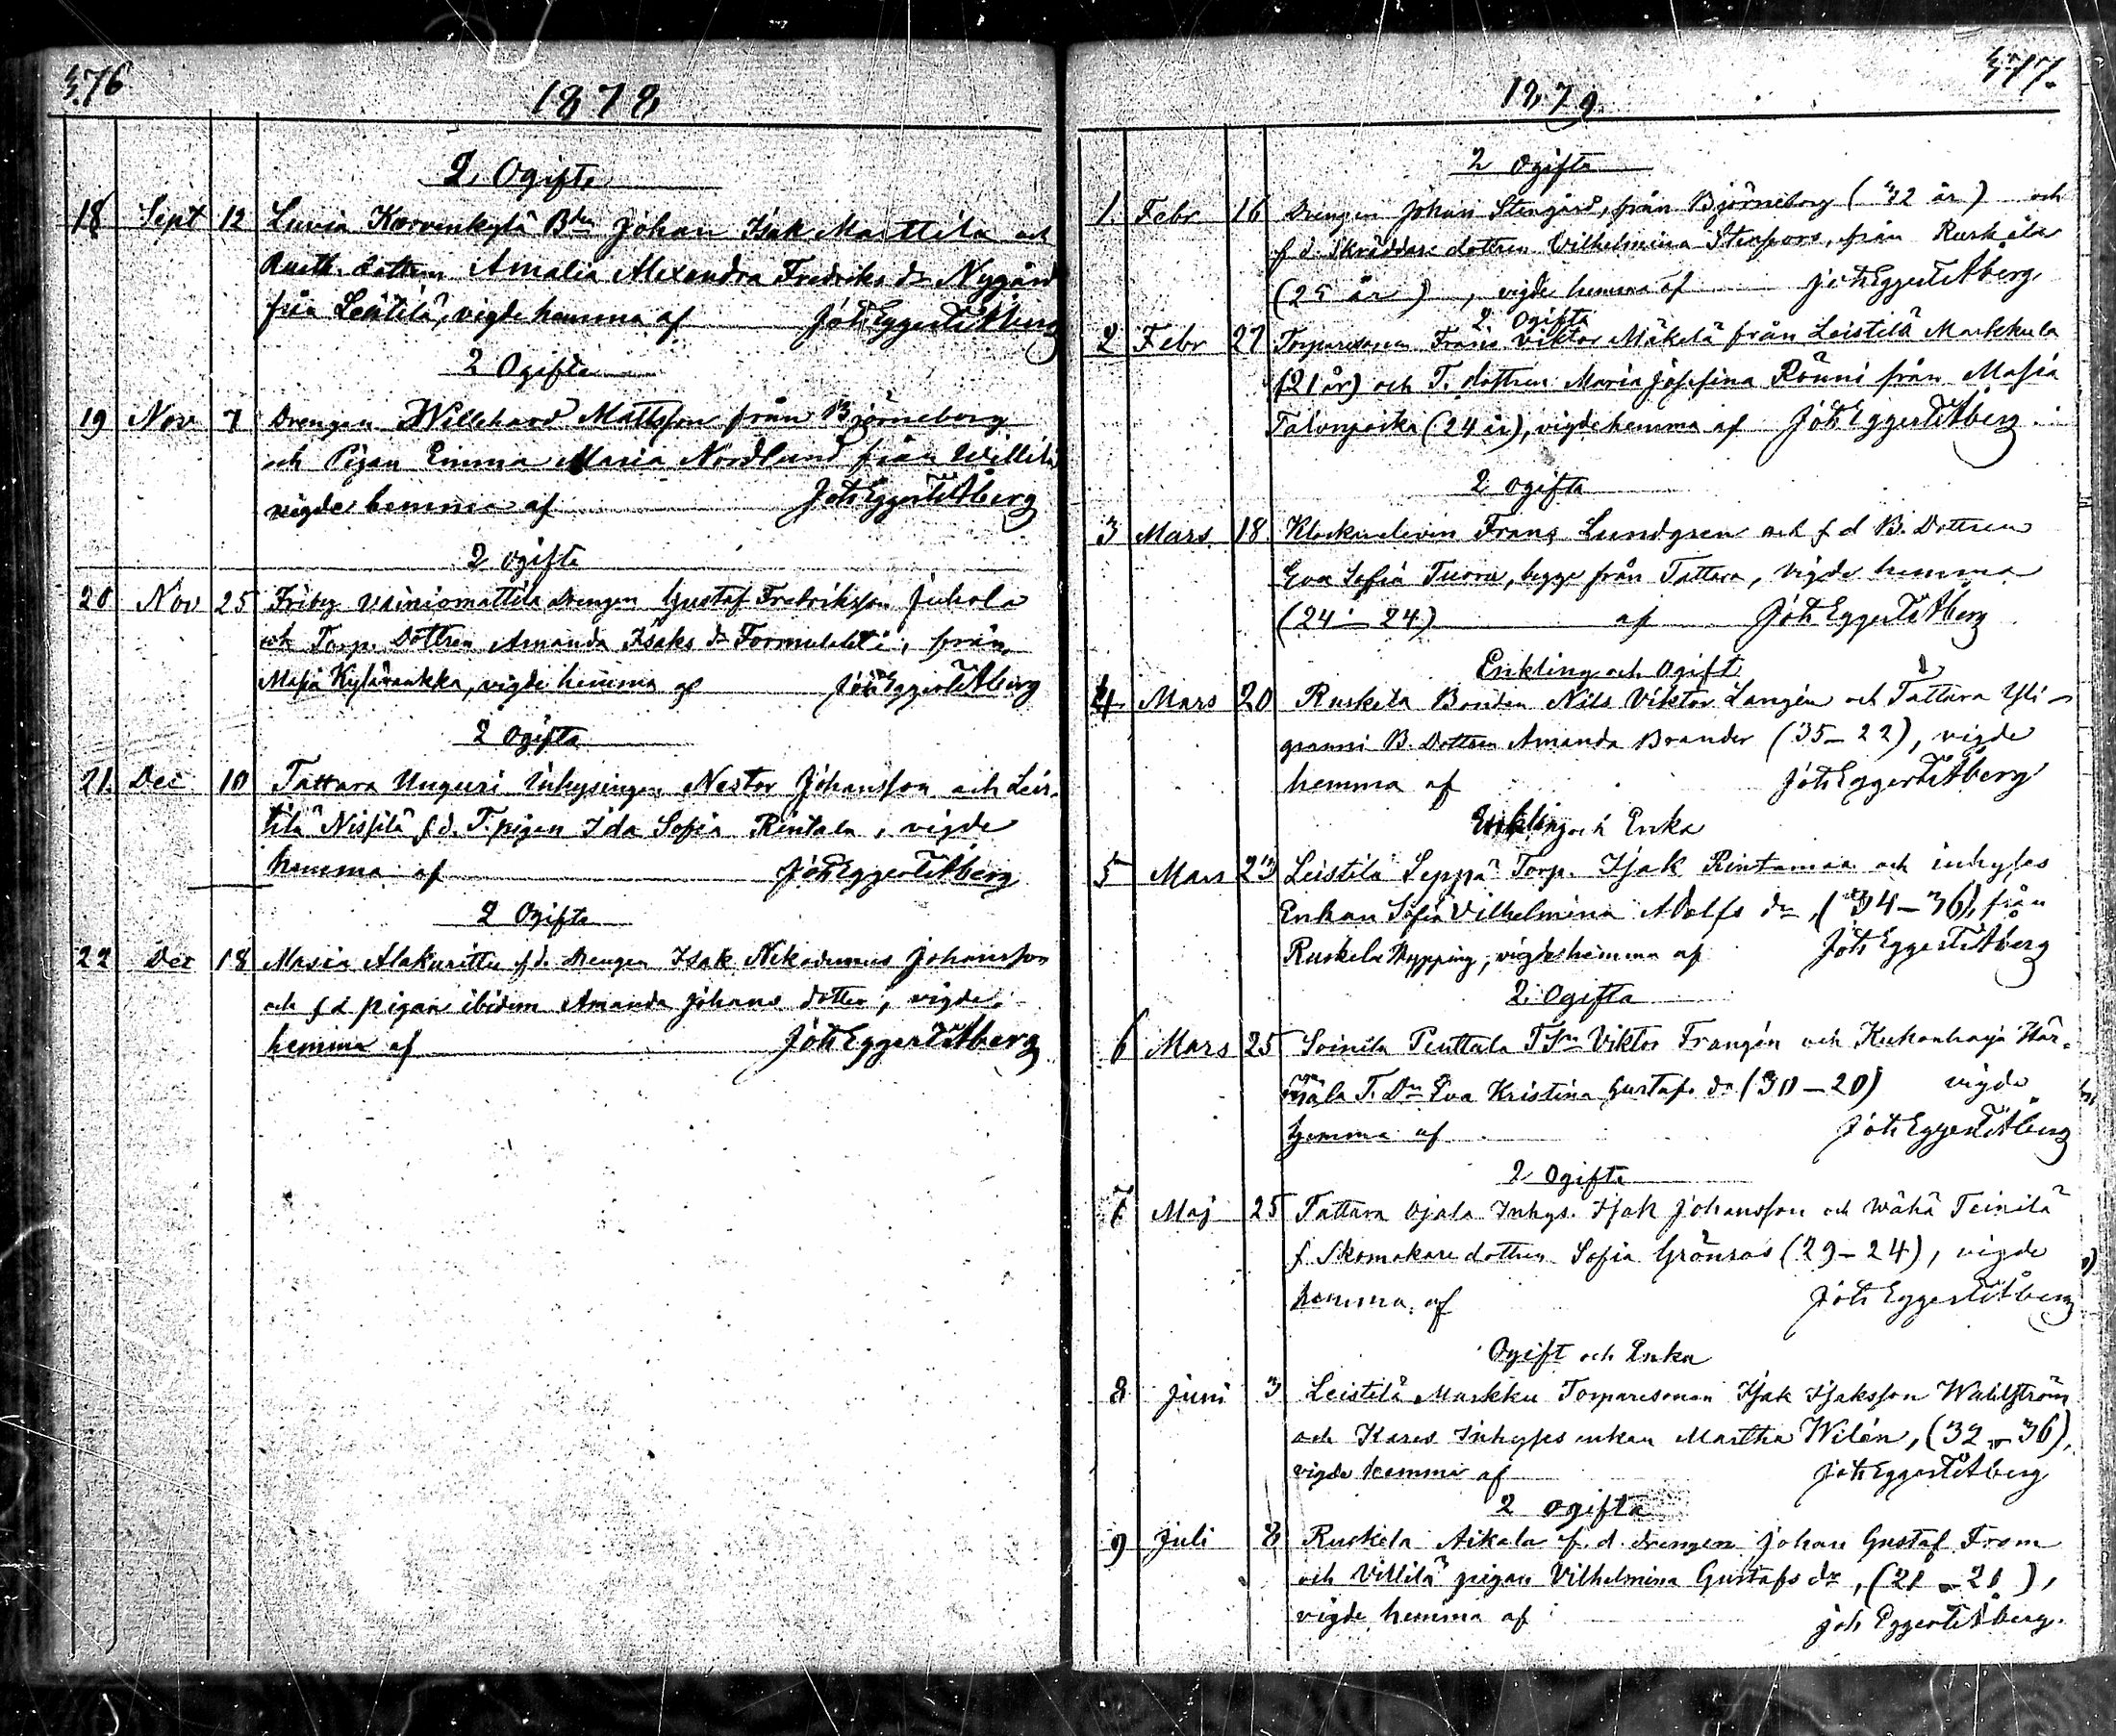 376
1878
2 Ogifta
18 Sept 12 Luvia Korvenkylä Bden Johan Isak Marttila och
dottren Amalia Alexandra Fredriks dr Nygård
från Leistilä, vigde hemma af Joh Eggert Åberg
2 Ogifta
19 Nov 7 Drengen Willehard Mattsson från Björneborg
och Pigan Emma Maria Nordlund från Willilä
vigde hemma af Joh Eggert Åberg
2 ogifta
20 Nov 25 Friby Vainiomattila Drengen Gustaf Fredriksson Juhola
och Torp. Dottren Amanda Isaks dr från
Masia vigde hemma af Joh Eggert Åberg
2 Ogifta
21. Dec 10 Tattara Unguri Inhysingen Nestor Johansson och Leis-
tilä Nissilä f.d. T. pigan Ida Sofia Rintala, vigde
hemma af Joh Eggert Åberg
2 Ogifta
22 Dec 18 Masia Alakurittu f.d. Drengen Isak Nikodemus Johansson
och f d pigan ibidem Amanda Johans dotter, vigde
hemma af Joh Eggert Åberg
377.
1879.
2 Ogifta
1. Febr 16 Drengen Johan Stengård, från Björneborg (32 år) och
f d. Skräddare dottren Wilhelmina Stenfors, från Ruskila
(25 år), vigde hemma af Joh Eggert Åberg
2 Ogifta
2 Febr 27 Torparesonen Frans Viktor Mäkelä från Leistilä Markkula
(21 år) och T. dottren Maria Josefina Rönni från Masia
(24 år), vigde hemma af Joh Eggert Åberg
2 ogifta
3 Mars 18 Klockareleven Frans Lundgren och f d B. Dottren
Eva Sofia Tuoru, begge från Tattara, vigde hemma
(24 – 24) af Joh Eggert Åberg
Enkling och Ogift
4 Mars 20 Ruskila Bonden Nils Viktor Langén och Tattara Yli-
B. Dottren Amanda Brander (35 – 22), vigde
hemma af Joh Eggert Åberg
Enkling och Enka
5 Mars 23 Leistilä Seppä Torp. Isak Rintamaa och inhyses
Enkan Sofia Vilhelmina Adolfs dr, (34 – 36), från
Ruskela Nypping, vigde hemma af Joh Eggert Åberg
2 Ogifta
6 Mars 25 Soinila Penttala T Sn Viktor Frangén och Kukonharja Här-
T. Dn Eva Kristina Gustafs dr (30 – 20) vigde
hemma af Joh Eggert Åberg
2 Ogifta
7 Maj 25 Tattara Ojala Inhys. Isak Johansson och Wähä Teinilä
f Skomakare dottren Sofia Grönroos (29 – 24), vigde
hemma af Joh Eggert Åberg
Ogift och Enka
8 Juni 3 Leistilä Markku Torparesonen Isak Isaksson Wahlström
och Inhyses enkan Martha Wilén, (32 – 36),
vigde hemma af Joh Eggert Åberg
2 ogifta
9 Juli 8 Ruskela Aikala f. d. drengen Johan Gustaf From
och Villilä pigan Vilhelmina Gustafs dr, (21 – 21),
vigde hemma af Joh Eggert Åberg.